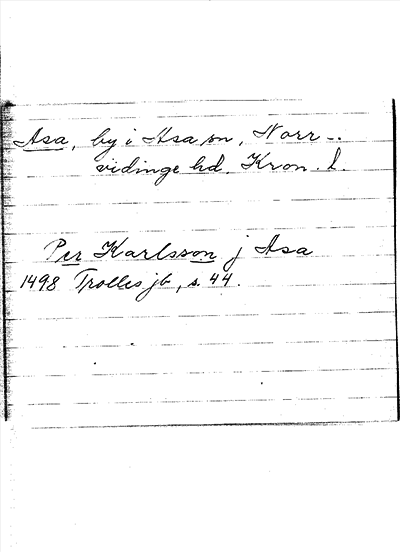 Asa, by i Asa sn, Norr-
vidinge hd, Kron. l.
Per Karlsson j Asa
1498 Trolles jb, s. 44.